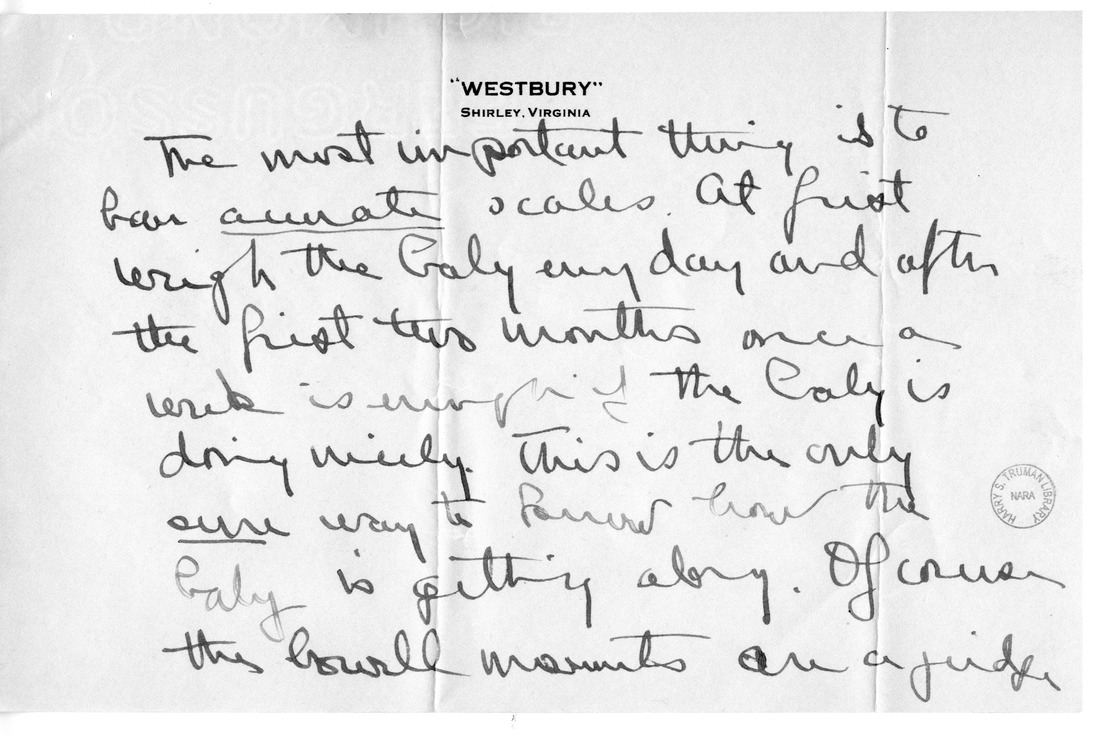 "WESTBURY"
SHIRLEY, VIRGINIA
The most important thing is to
have accurate scales. At first
weigh the baby every day and after
the first two months once a
week is enough if the baby is
doing nicely. This is the only
sure way to know how the
baby is getting along. Of course
the bowell movments are a judge
HARRY S. TRUMAN LIBRARY
NARA